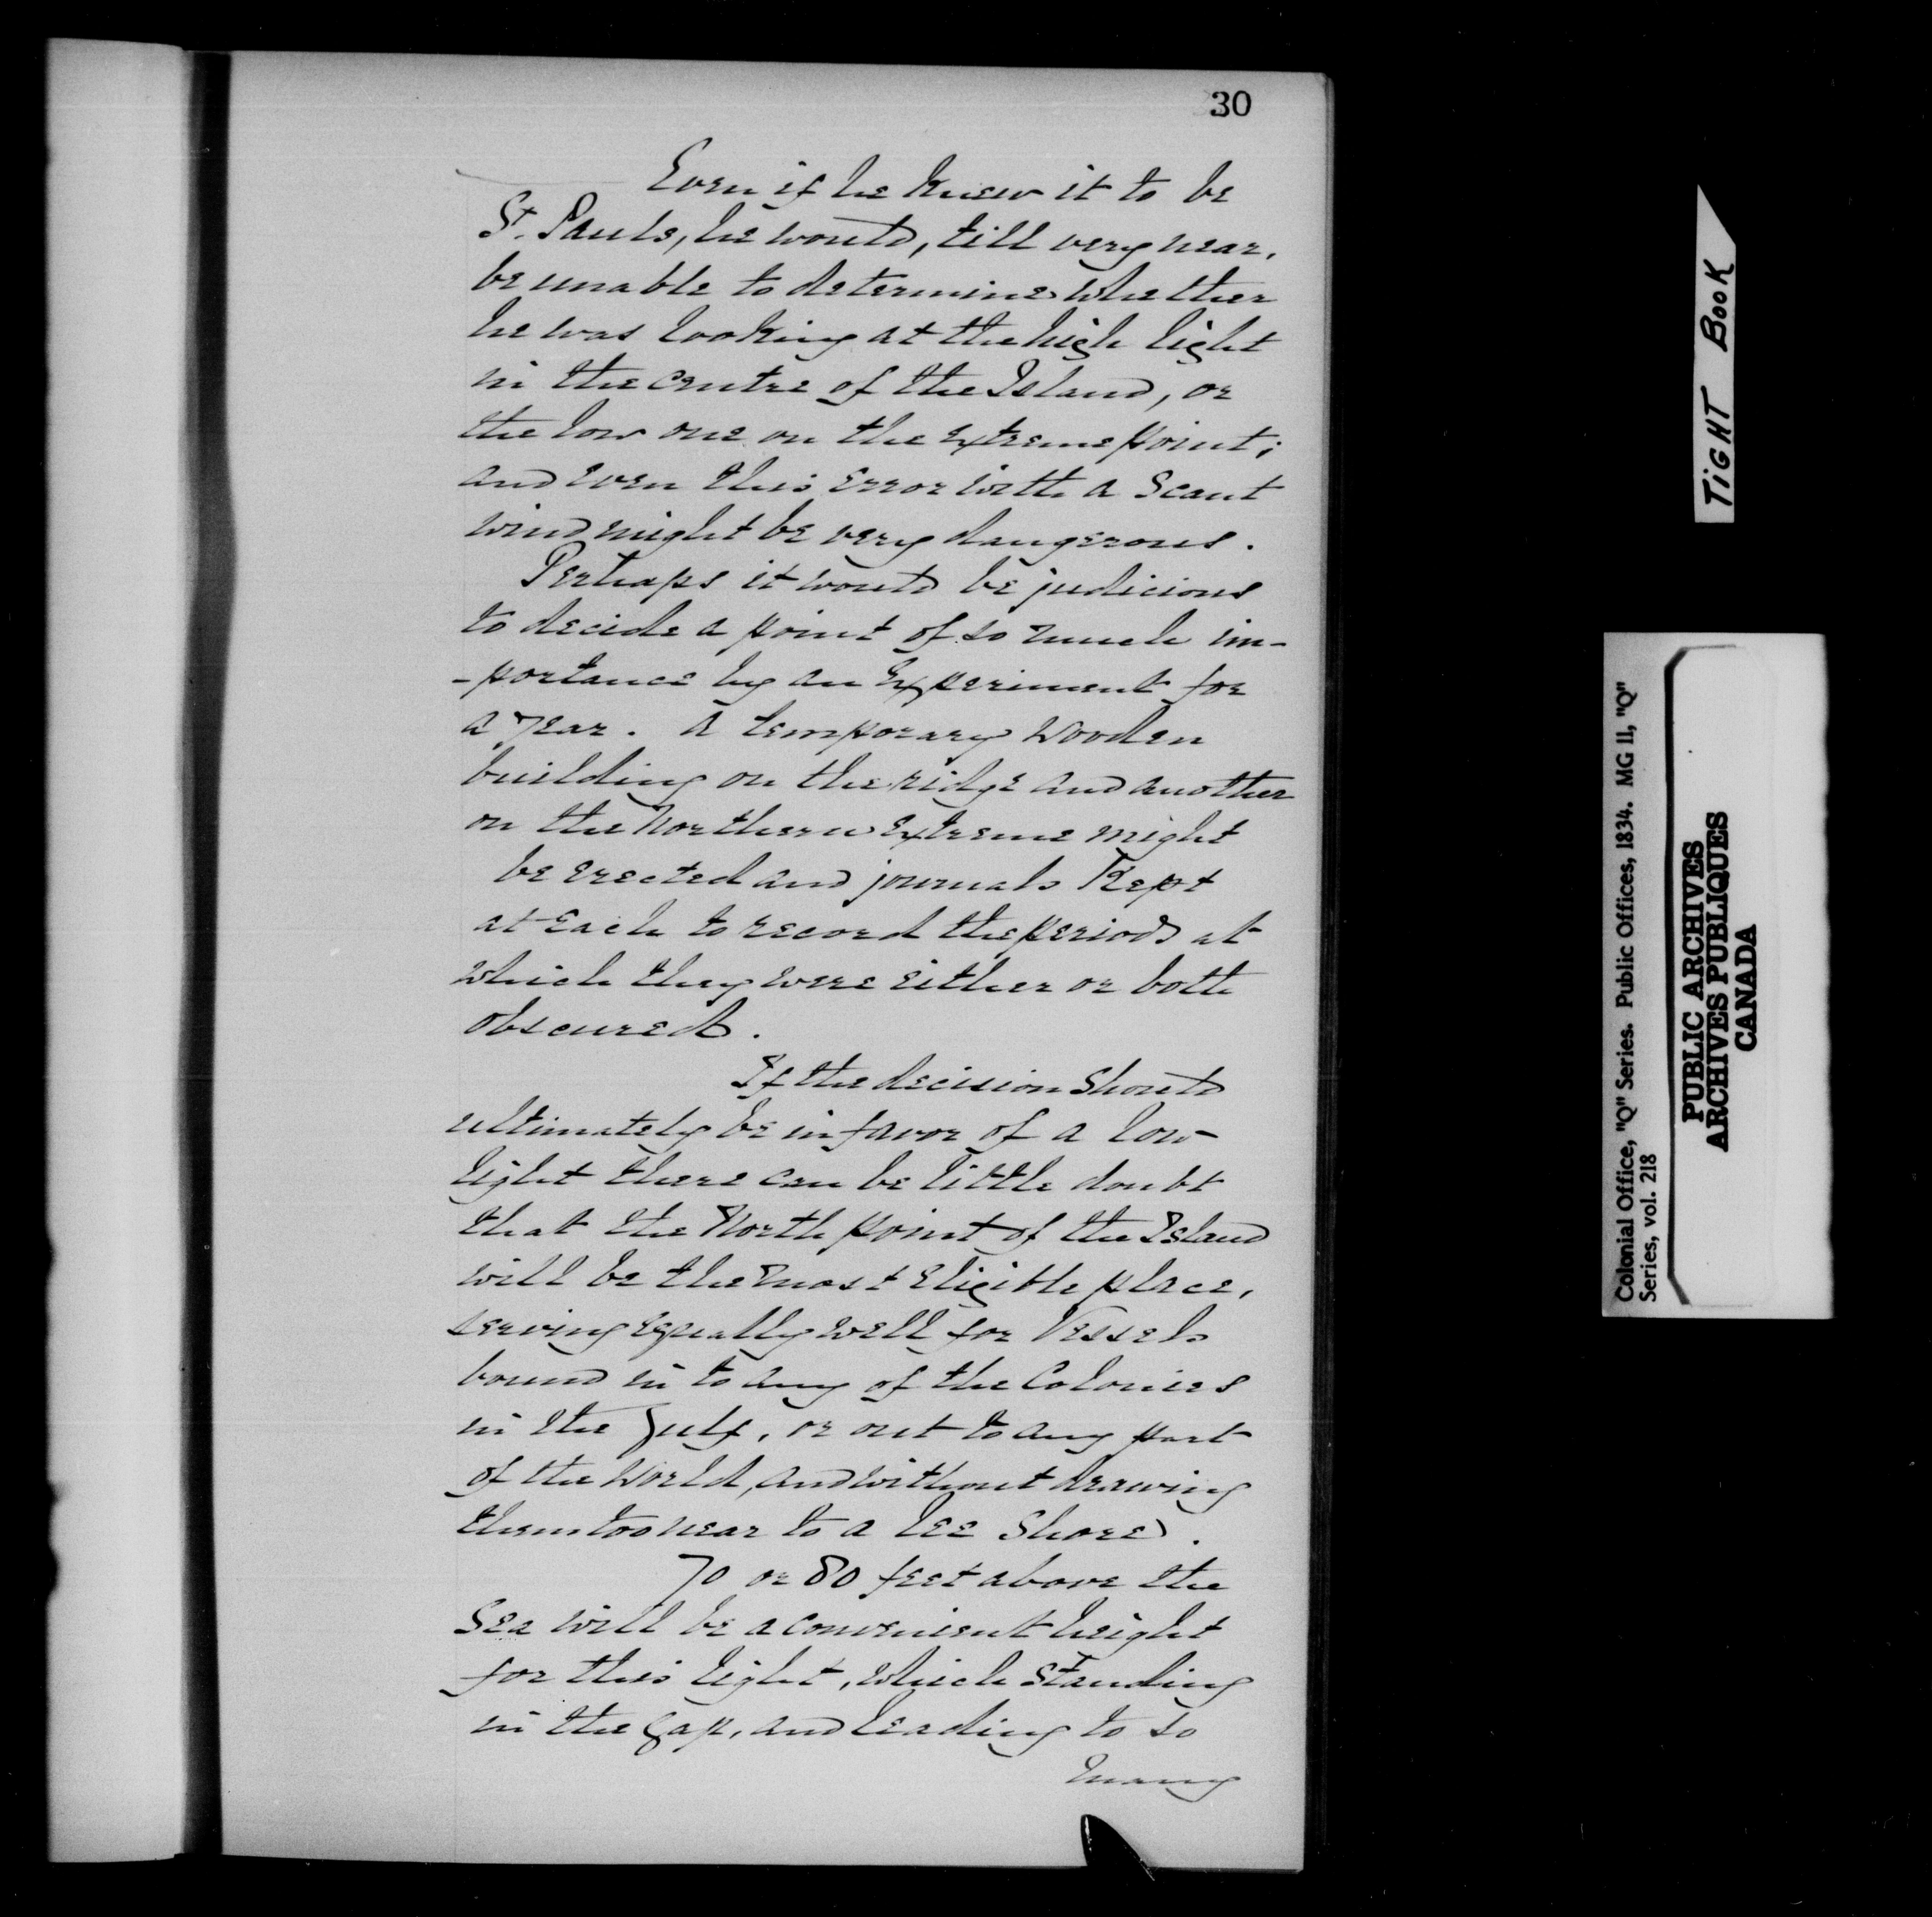 30
Even if he knew it to be
St. Pauls, he would, till very near,
be unable to determine whether
he was looking at the high light
in the centre of the Island, or
the low one on the extreme point;
and even this error with a scant
wind might be very dangerous.
Perhaps it would be judicious
to decide a point of so much im-
-portance by an experiment for
a year. A temporary wooden
building on the ridge and another
on the Northern extreme might
be erected and journals Kept
at each to record the periods at
which they were either or both
obscured.
If the decision should
ultimately be in favor of a low
light there can be little doubt
that the North point of the Island
will be the most eligible place,
serving equally well for Vessels
bound in to any of the Colonies
in the Gulf, or out to any part
of the World, and without drawing
them too near to a lee shore.
70 or 80 feet above the
Sea will be a convenient height
for this light, which standing
in the gap, and leading to so
many
TIGHT BOOK
Colonial Office, "Q" Series. Public Offices, 1834. MG 11, "Q"
Series, vol. 218
PUBLIC ARCHIVES
ARCHIVES PUBLIQUES
CANADA